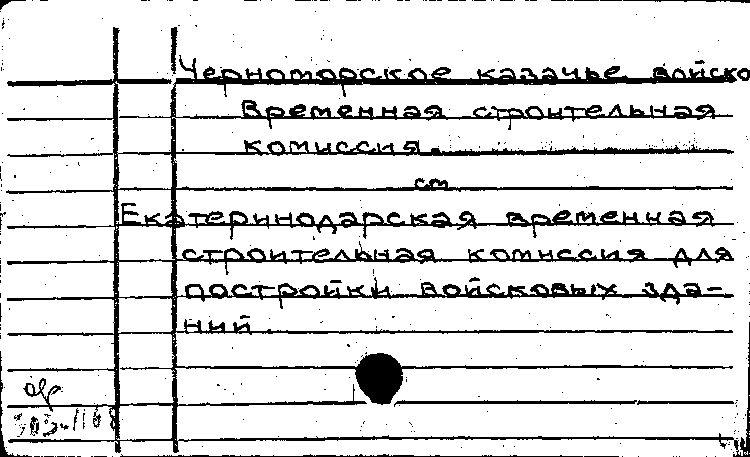 Черноморское казачье войско
Временная строительная
комиссия.
см
Екатеринодарская временная
строительная комиссия для
постройки войсковых зда-
ний.